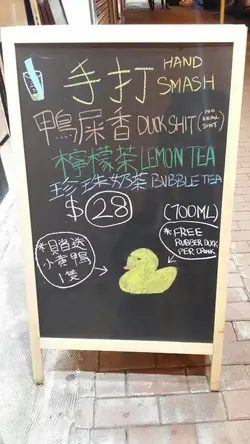 手打 HAND SMASH
鴨屎香 DUCKSHIT (NO REAL SHIT)
檸檬茶 LEMON TEA
珍珠奶茶 BUBBLE TEA
$28 (700ML)
*買1杯送
小黃鴨
1隻
*FREE
RUBBER DUCK
PER DRINK